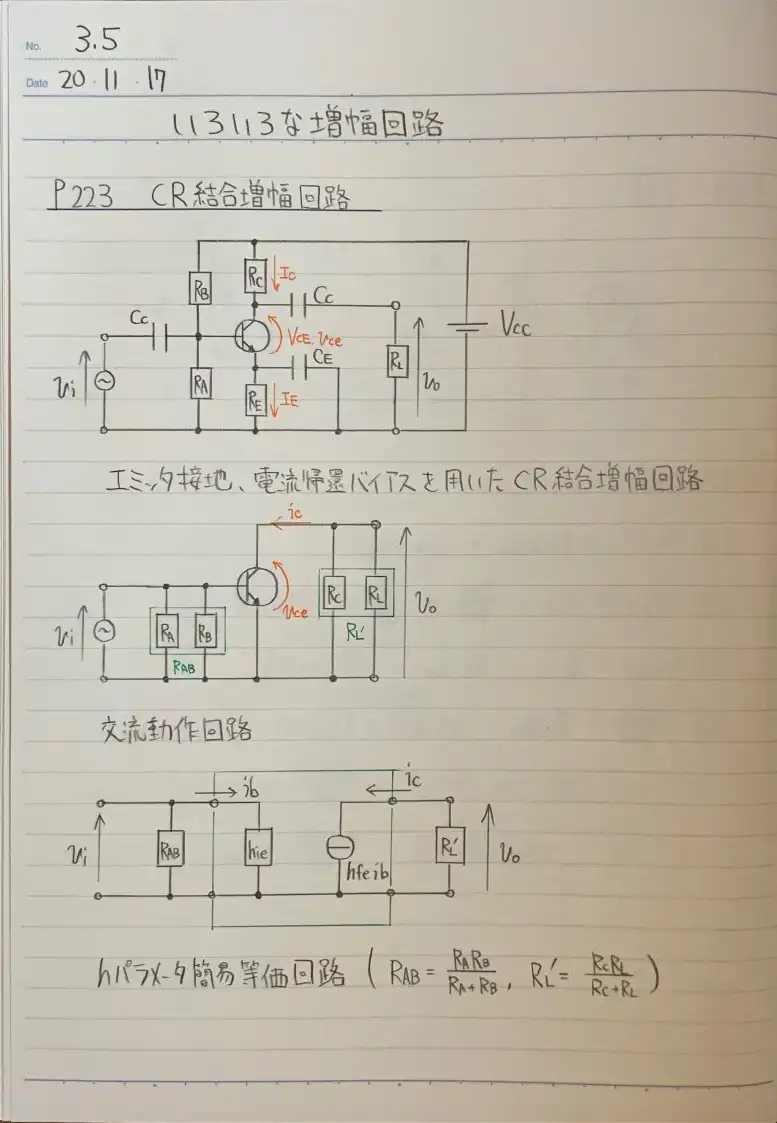 No. 3.5
Date 20・11・17
いろいろな増幅回路
P223 CR結合増幅回路
RB
RC
IC
CC
CC
VCE, vce
VCC
vi
RA
CE
RE
IE
RL
vo
エミッタ接地、電流帰還バイアスを用いたCR結合増幅回路
ic
vi
RA
RB
RAB
vce
RC
RL
RL'
vo
交流動作回路
ib
ic
vi
RAB
hie
hfe ib
RL'
vo
hパラメータ簡易等価回路 ( RAB = RARB/RA+RB, RL' = RCRL/RC+RL )